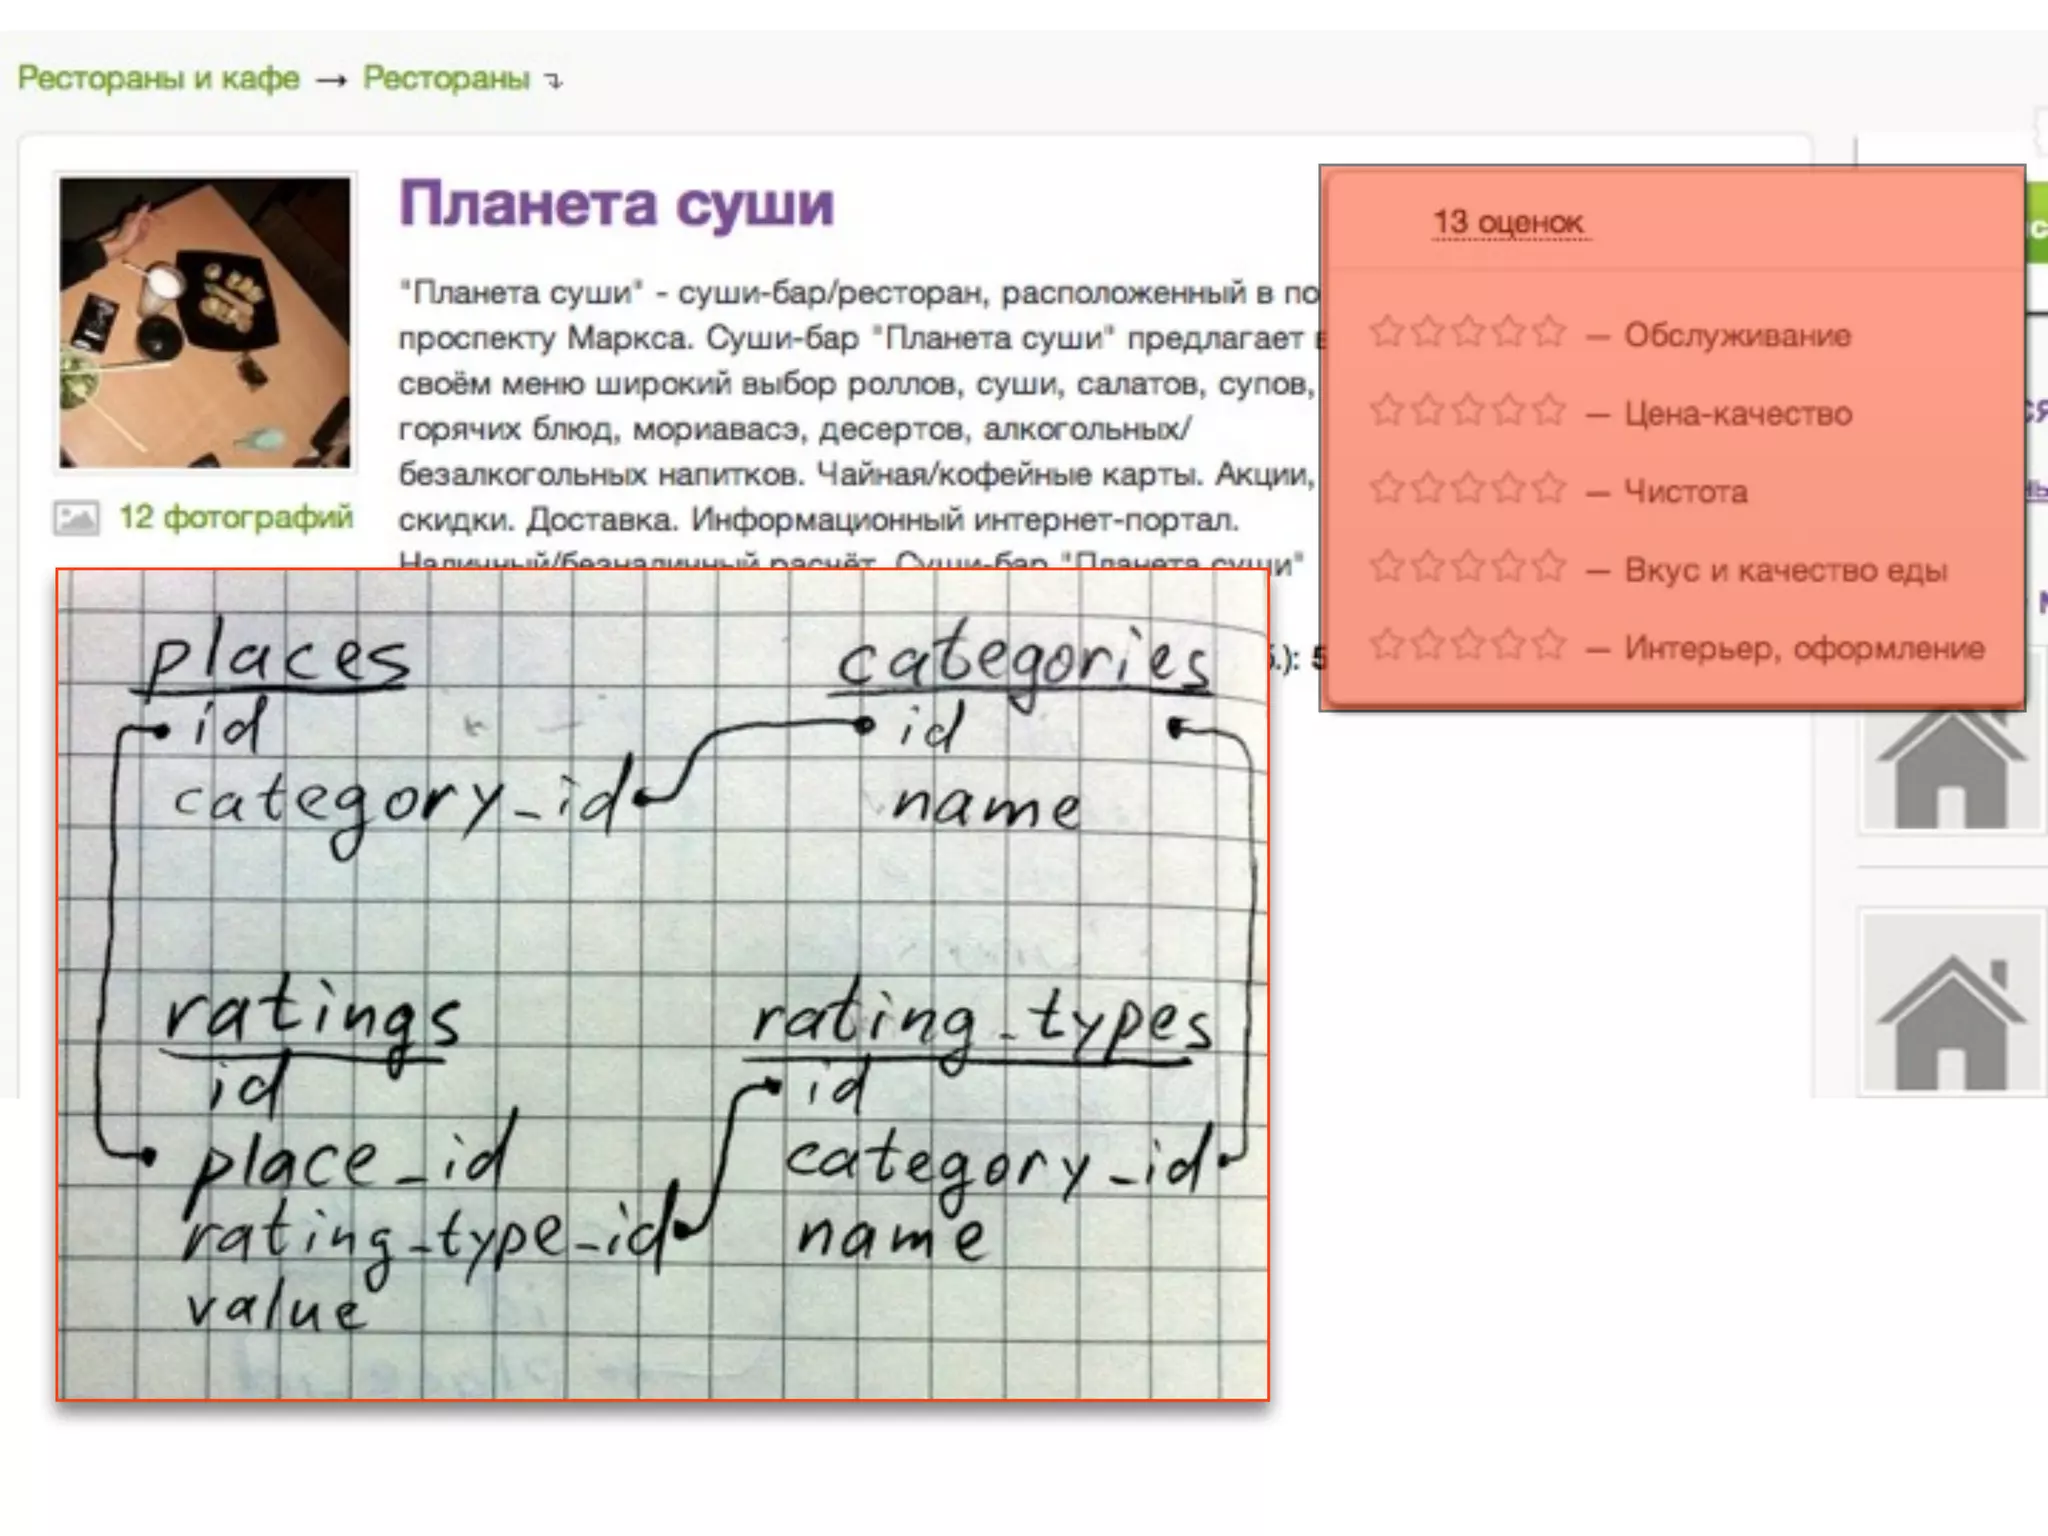 Рестораны и кафе → Рестораны
Планета суши
"Планета суши" - суши-бар/ресторан, расположенный в по
проспекту Маркса. Суши-бар "Планета суши" предлагает
своём меню широкий выбор роллов, суши, салатов, супов,
горячих блюд, мориавасэ, десертов, алкогольных/
безалкогольных напитков. Чайная/кофейные карты. Акции,
скидки. Доставка. Информационный интернет-портал.
Наличный/безналичный расчёт. Суши-бар "Планета суши"
12 фотографий
13 оценок
— Обслуживание
— Цена-качество
— Чистота
— Вкус и качество еды
— Интерьер, оформление
places
id
category_id
categories
id
name
ratings
id
place_id
rating_type_id
value
rating_types
id
category_id
name